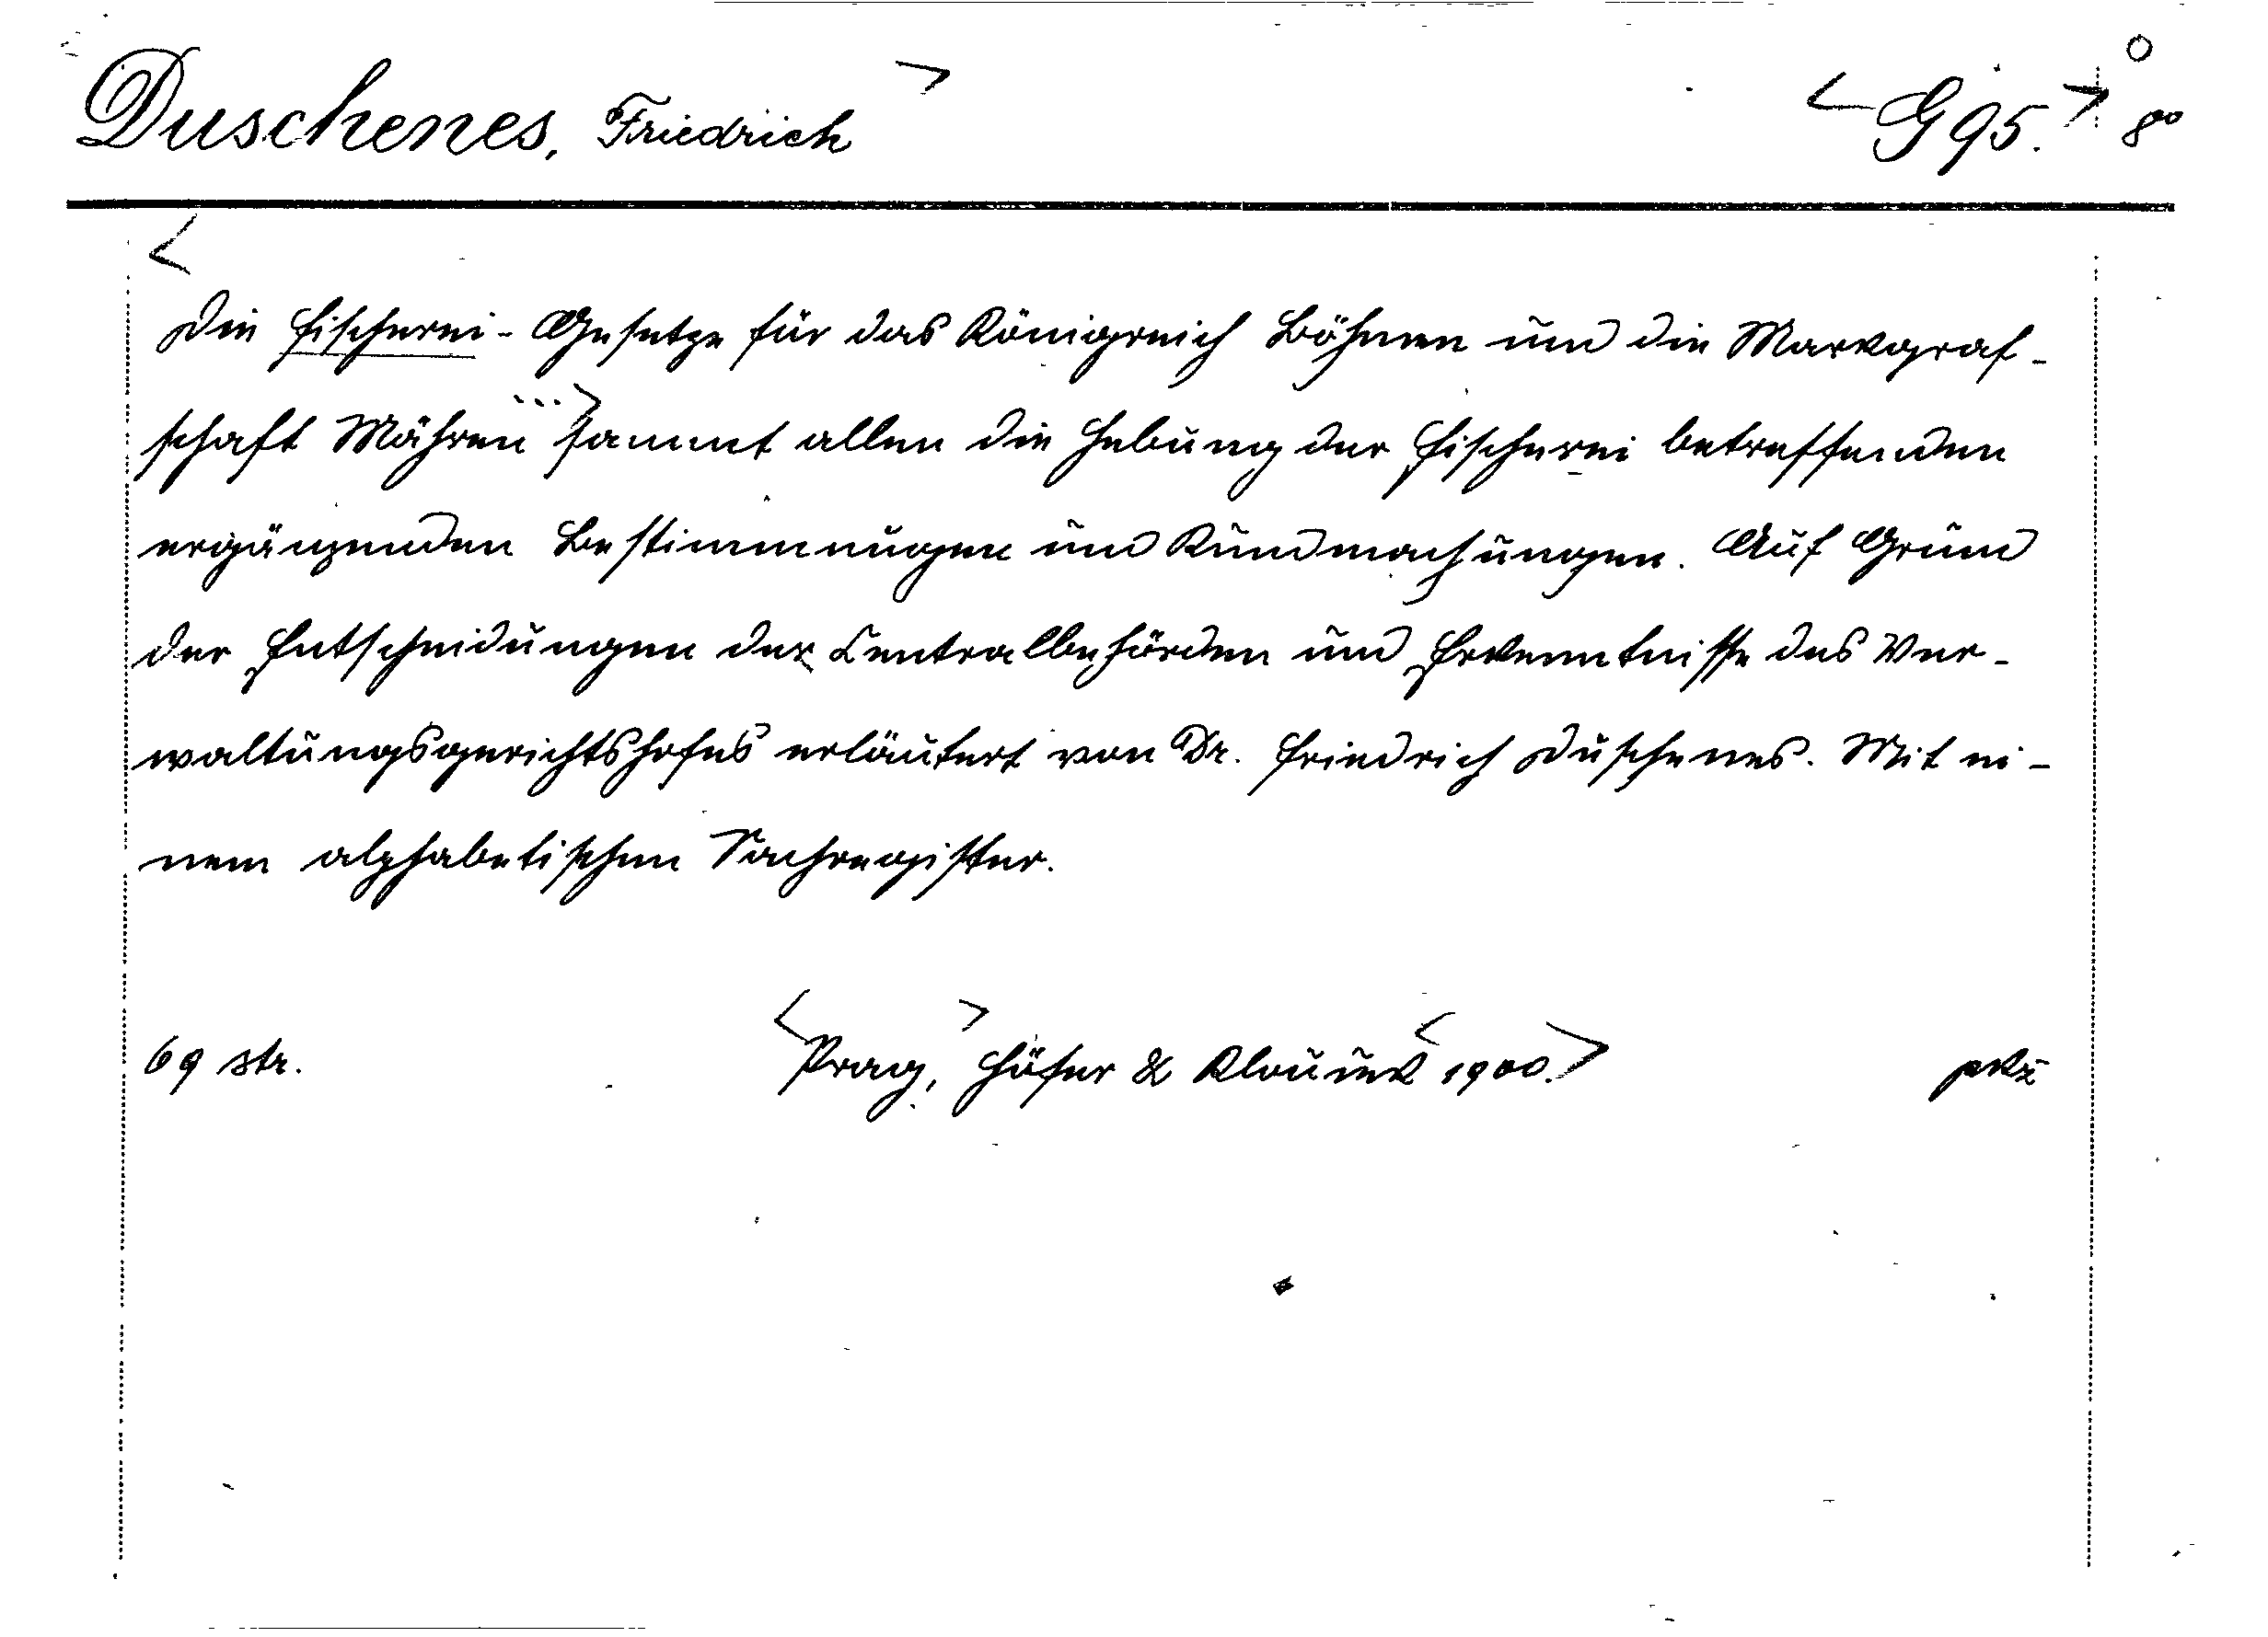 Duschenes, Friedrich
G 95. 8°
Die Fischerei-Gesetze für das Königreich Böhmen und die Markgraf-
schaft Mähren ... sammt allen die Hebung der Fischerei betreffenden
ergänzenden Bestimmungen und Kundmachungen. Auf Grund
der Entscheidungen der Centralbehörden und Erkenntnisse des Ver-
waltungsgerichtshofes erläutert von Dr. Friedrich Duschenes. Mit ei-
nem alphabetischen Sachregister.
69 str. Prag, Höfer & Klouček 1900.